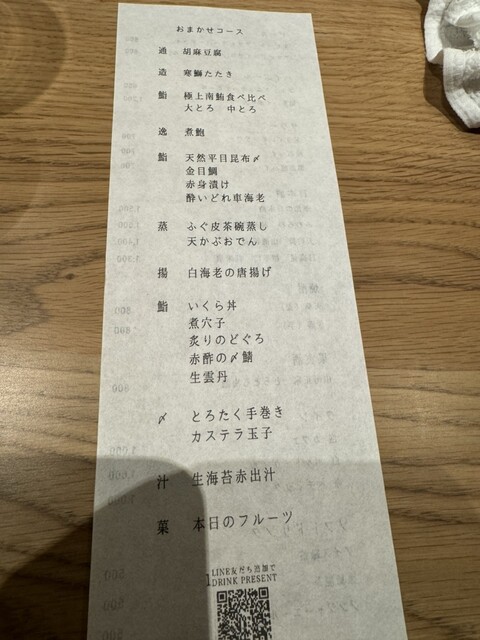 おまかせコース
通 胡麻豆腐
造 寒鰤たたき
鮨 極上南鮪食べ比べ
大とろ 中とろ
逸 煮鮑
鮨 天然平目昆布〆
金目鯛
赤身漬け
酔いどれ車海老
蒸 ふぐ皮茶碗蒸し
天かぶおでん
揚 白海老の唐揚げ
鮨 いくら丼
煮穴子
炙りのどぐろ
赤酢の〆鯖
生雲丹
〆 とろたく手巻き
カステラ玉子
汁 生海苔赤出汁
菓 本日のフルーツ
LINE友だち追加で
1DRINK PRESENT